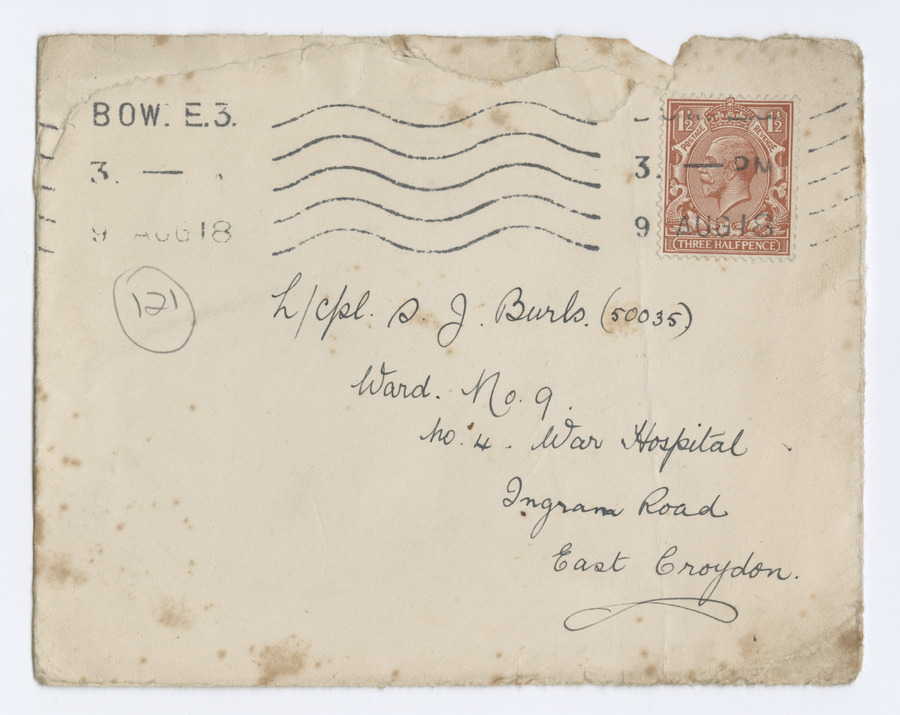 BOW. E.3.
3. —
9 AUG 18
3. — PM
9 AUG 18
1½ 1½
POSTAGE REVENUE
THREE HALFPENCE
121
L/cpl. S. J. Burls. (50035)
Ward. No. 9.
No. 4 - War Hospital
Ingram Road
East Croydon.